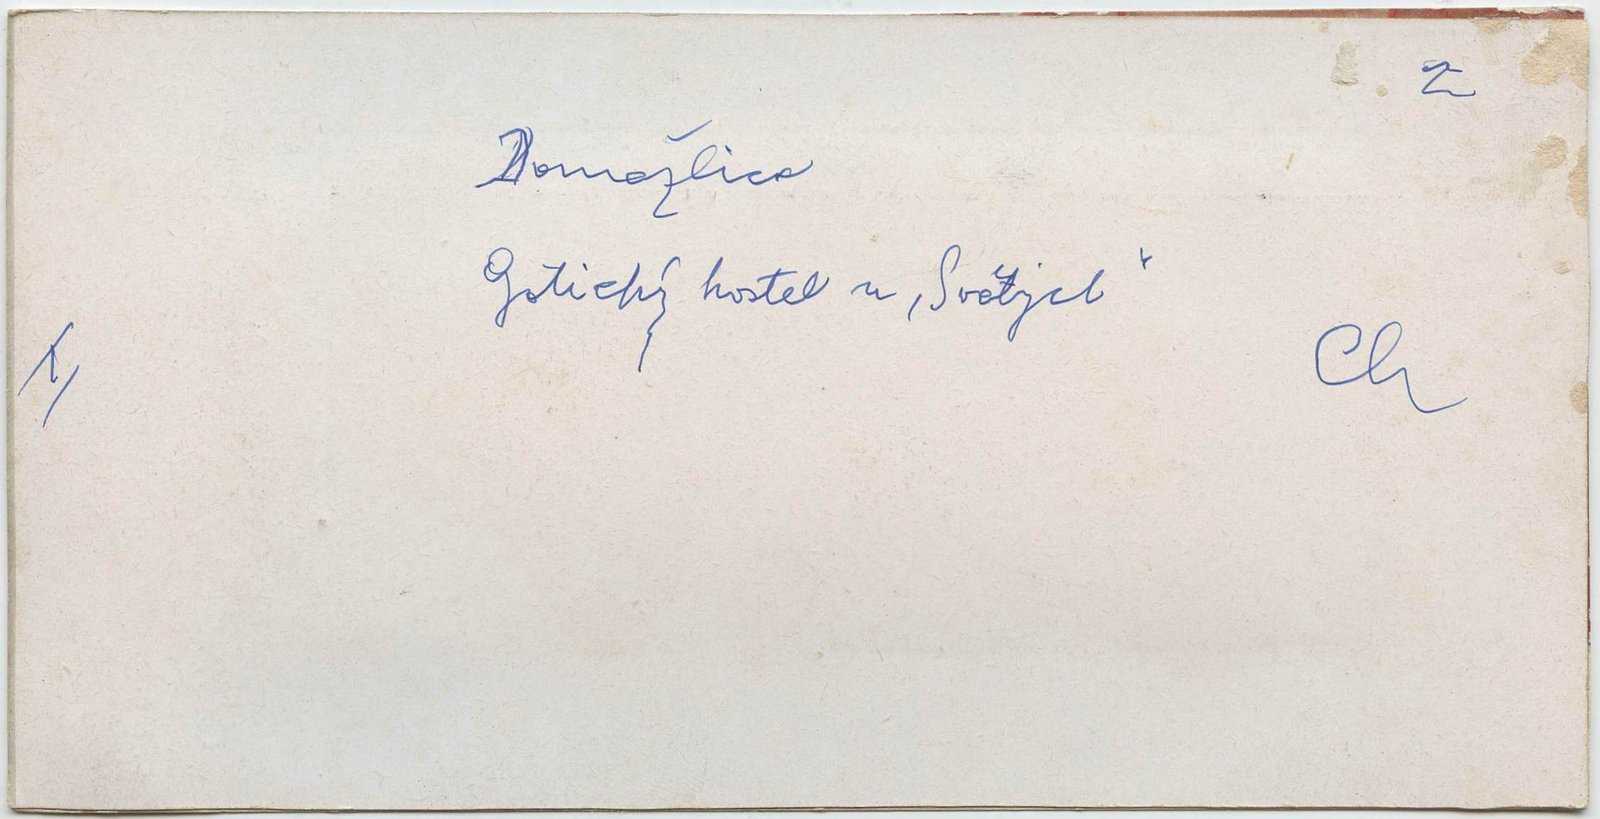 2
Domažlice
Gotický kostel u „Svatých“
Ch